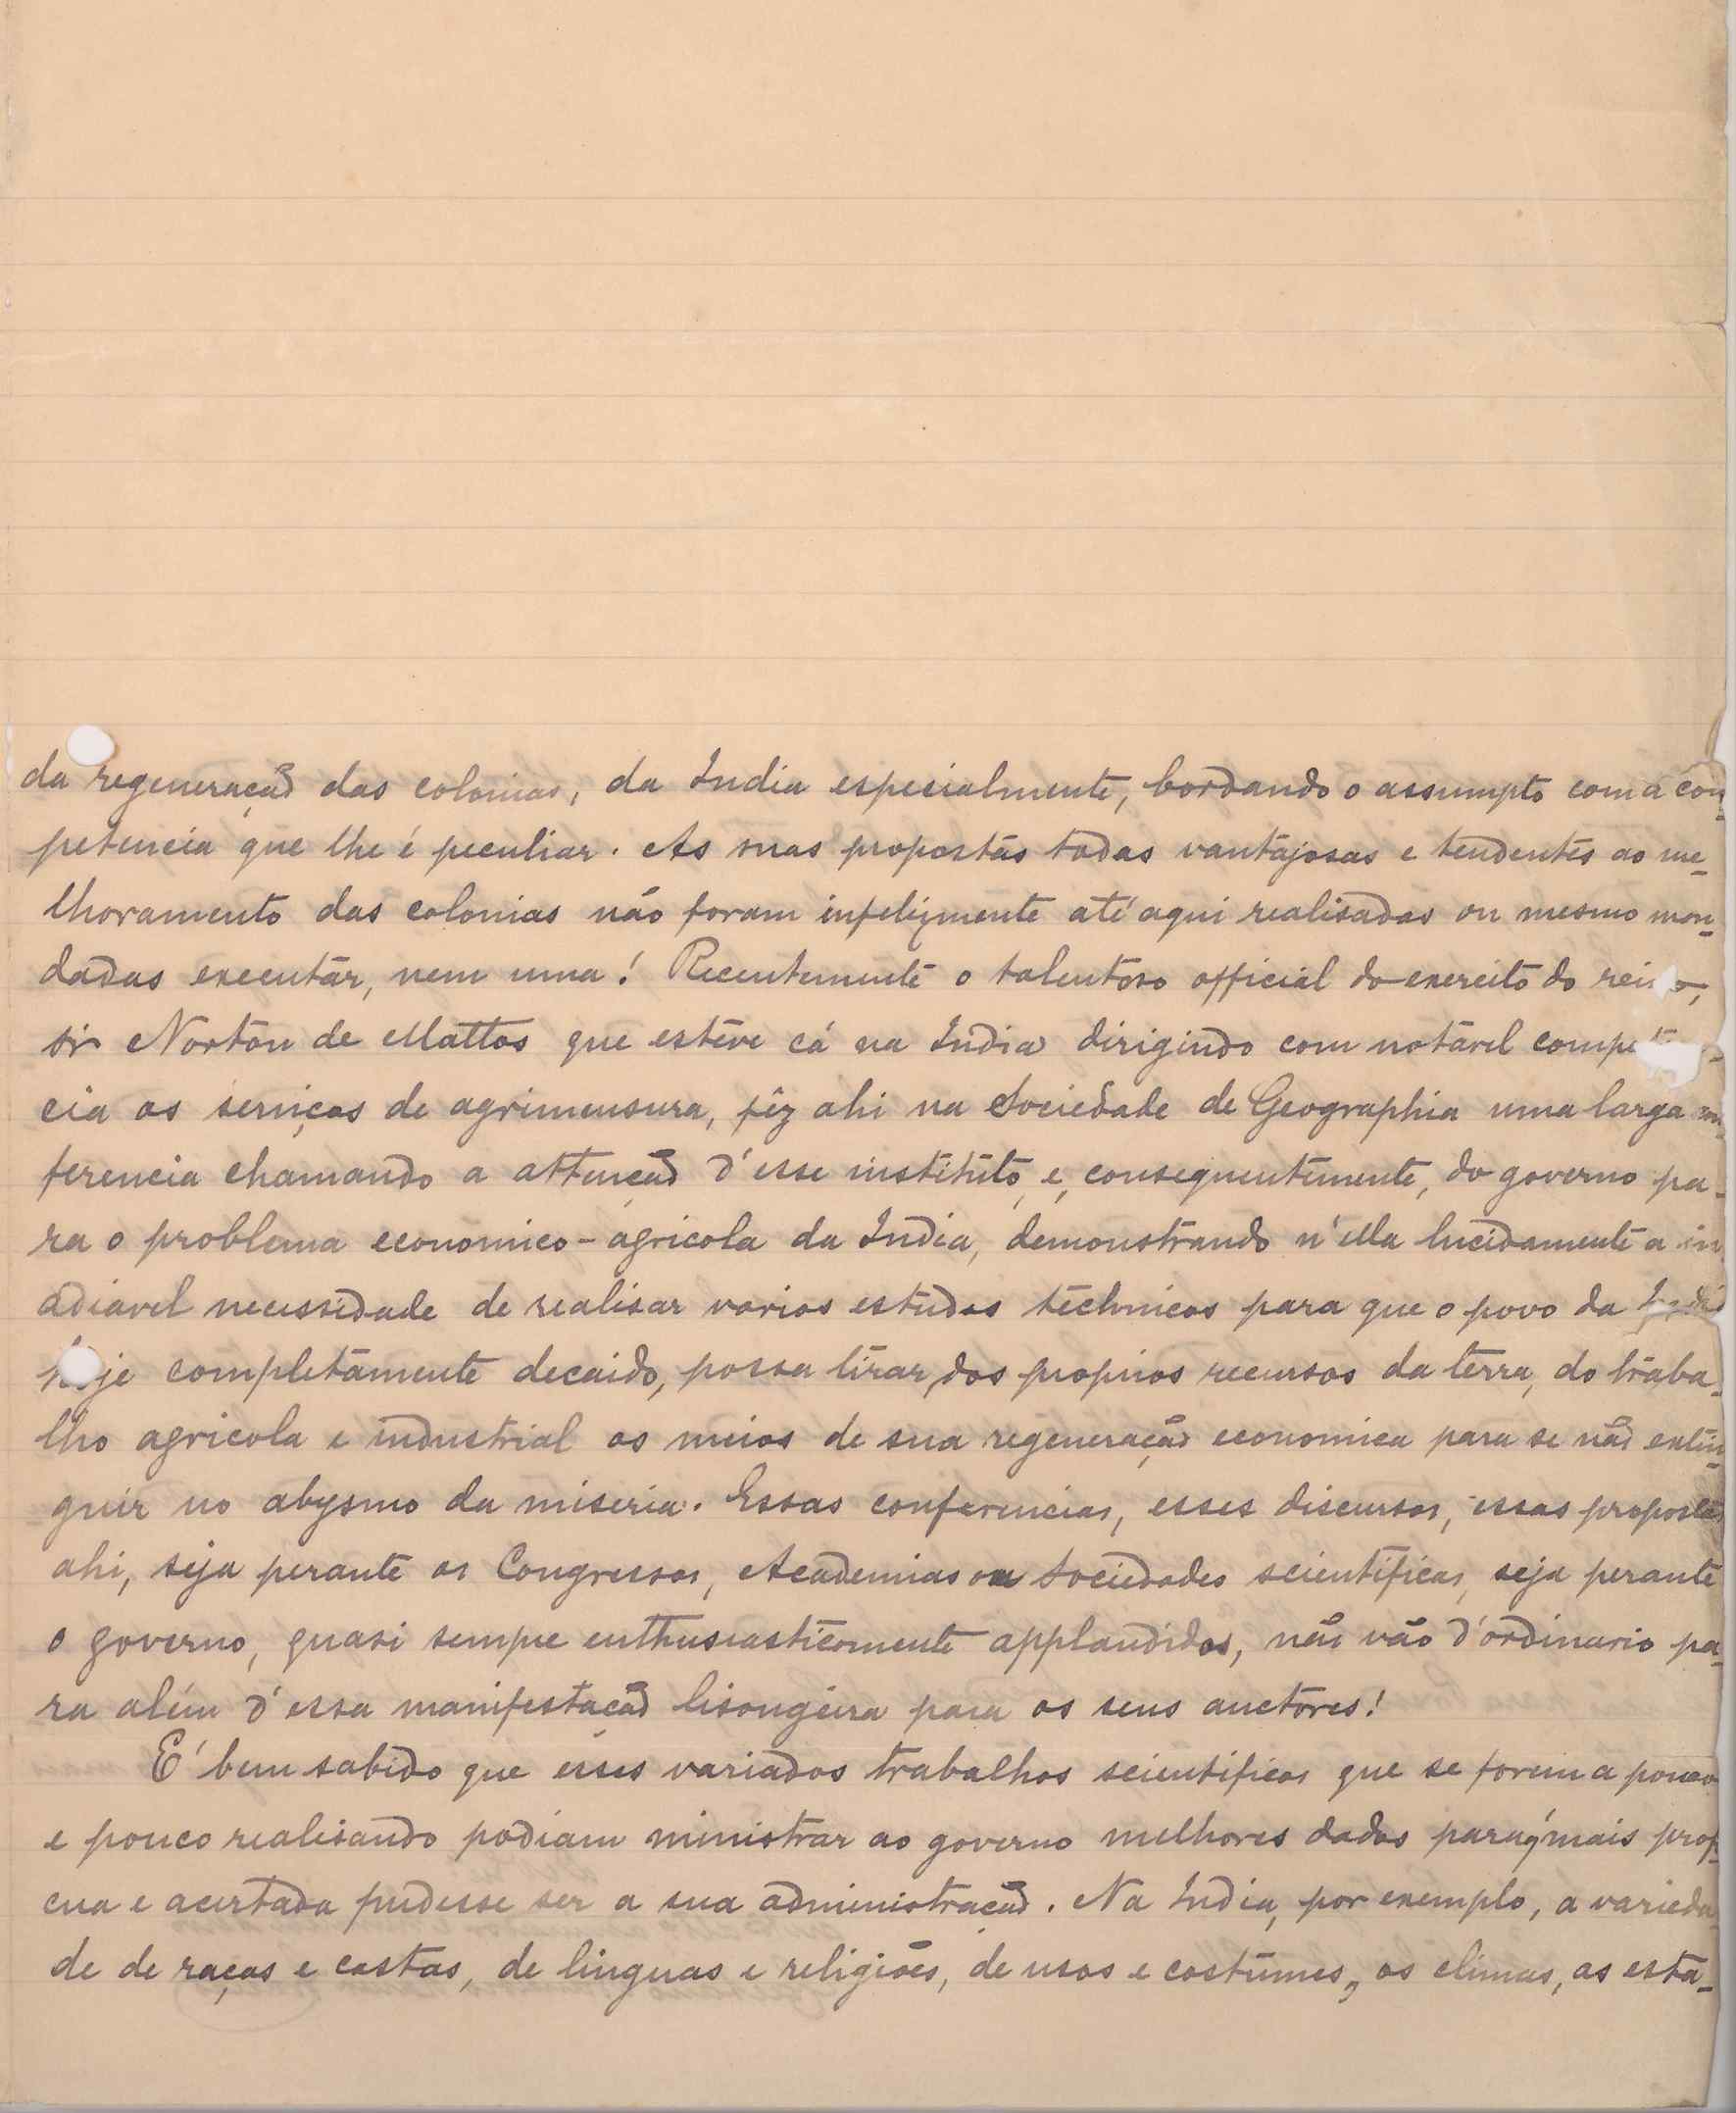 da regeneração das colonias, da India especialmente, bordando o assumpto com a com-
petencia que lhe é peculiar. As suas propostas todas vantajosas e tendentes ao me-
lhoramento das colonias não foram infelizmente até aqui realisadas ou mesmo man-
dadas executar, nem uma! Recentemente o talentoso official do exercito do reino,
sr Norton de Mattos que estêve cá na India dirigindo com notavel competen-
cia os serviços de agrimensura, fêz ahi na Sociedade de Geographia uma larga con-
ferencia chamando a attenção d'esse instituto, e, consequentemente, do governo pa-
ra o problema economico-agricola da India, demonstrando n'ella lucidamente a in
adiavel necessidade de realisar varios estudos technicos para que o povo da India
hoje completamente decaido, possa tirar, dos proprios recursos da terra, do traba-
lho agricola e industrial os meios de sua regeneração economica para se não extin-
guir no abysmo da miseria. Essas conferencias, esses discursos, essas propostas
ahi, seja perante os Congressos, Academias ou Sociedades scientificas, seja perante
o governo, quasi sempre enthusiasticamente applaudidos, não vão d'ordinario pa-
ra além d'essa manifestação lisongeira para os seus auctores!
E' bem sabido que esses variados trabalhos scientificos que se forem a pouco
e pouco realisando podiam ministrar ao governo melhores dados para q' mais prof-
cua e acertada pudesse ser a sua administração. Na India, por exemplo, a varieda
de de raças e castas, de linguas e religiões, de usos e costumes, os climas, as esta-